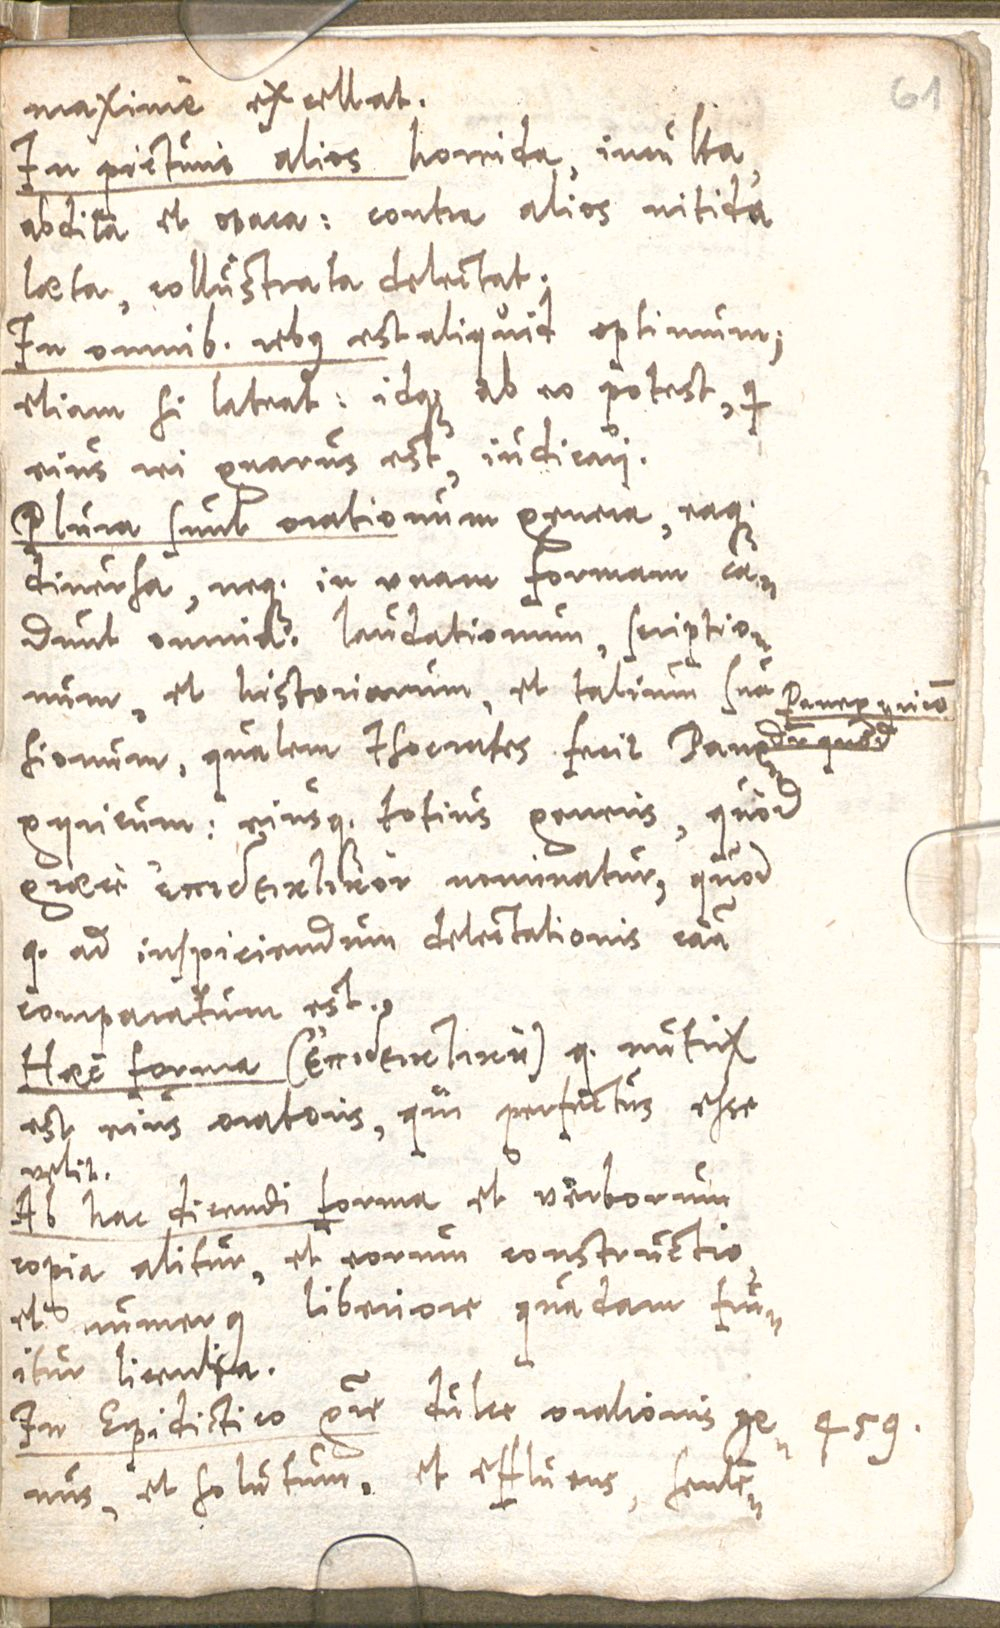 61
maxime excellat.
In picturis alios horrida, inculta,
abdita et opaca: contra alios nitida
læta, collustrata delectat.
In omnib. rebq est aliquid optimum;
etiam si lateat: idq; ab eo potest, q
eius rei gnarus est, iudicari.
Plura sunt orationum genera, eaq.
diuersa, neq. in vnam formam ca=
dunt omnia. laudationum, scriptio=
num, et historiarum, et talium sua
Panegyricō
sionum, qualem Isocrates fecit Pane=
quod
gyricum: eiusq. totius generis, quod
græcè ἐπιδεικτικὸν nominatur, quod
q. ad inspiciendum delectationis caũ
comparatum est.
Hæc forma (ἐπιδεικτικὴ) q. nutrix
est eius oratoris, qui perfectus esse
velit.
Ab hac dicendi forma et verborum
copia alitur, et eorum constructio,
et numerq liberiore quadam fru=
itur licentia.
In Epidictico gr̃e dulce orationis ge= 459.
nus, et solutum, et effluens, senten=